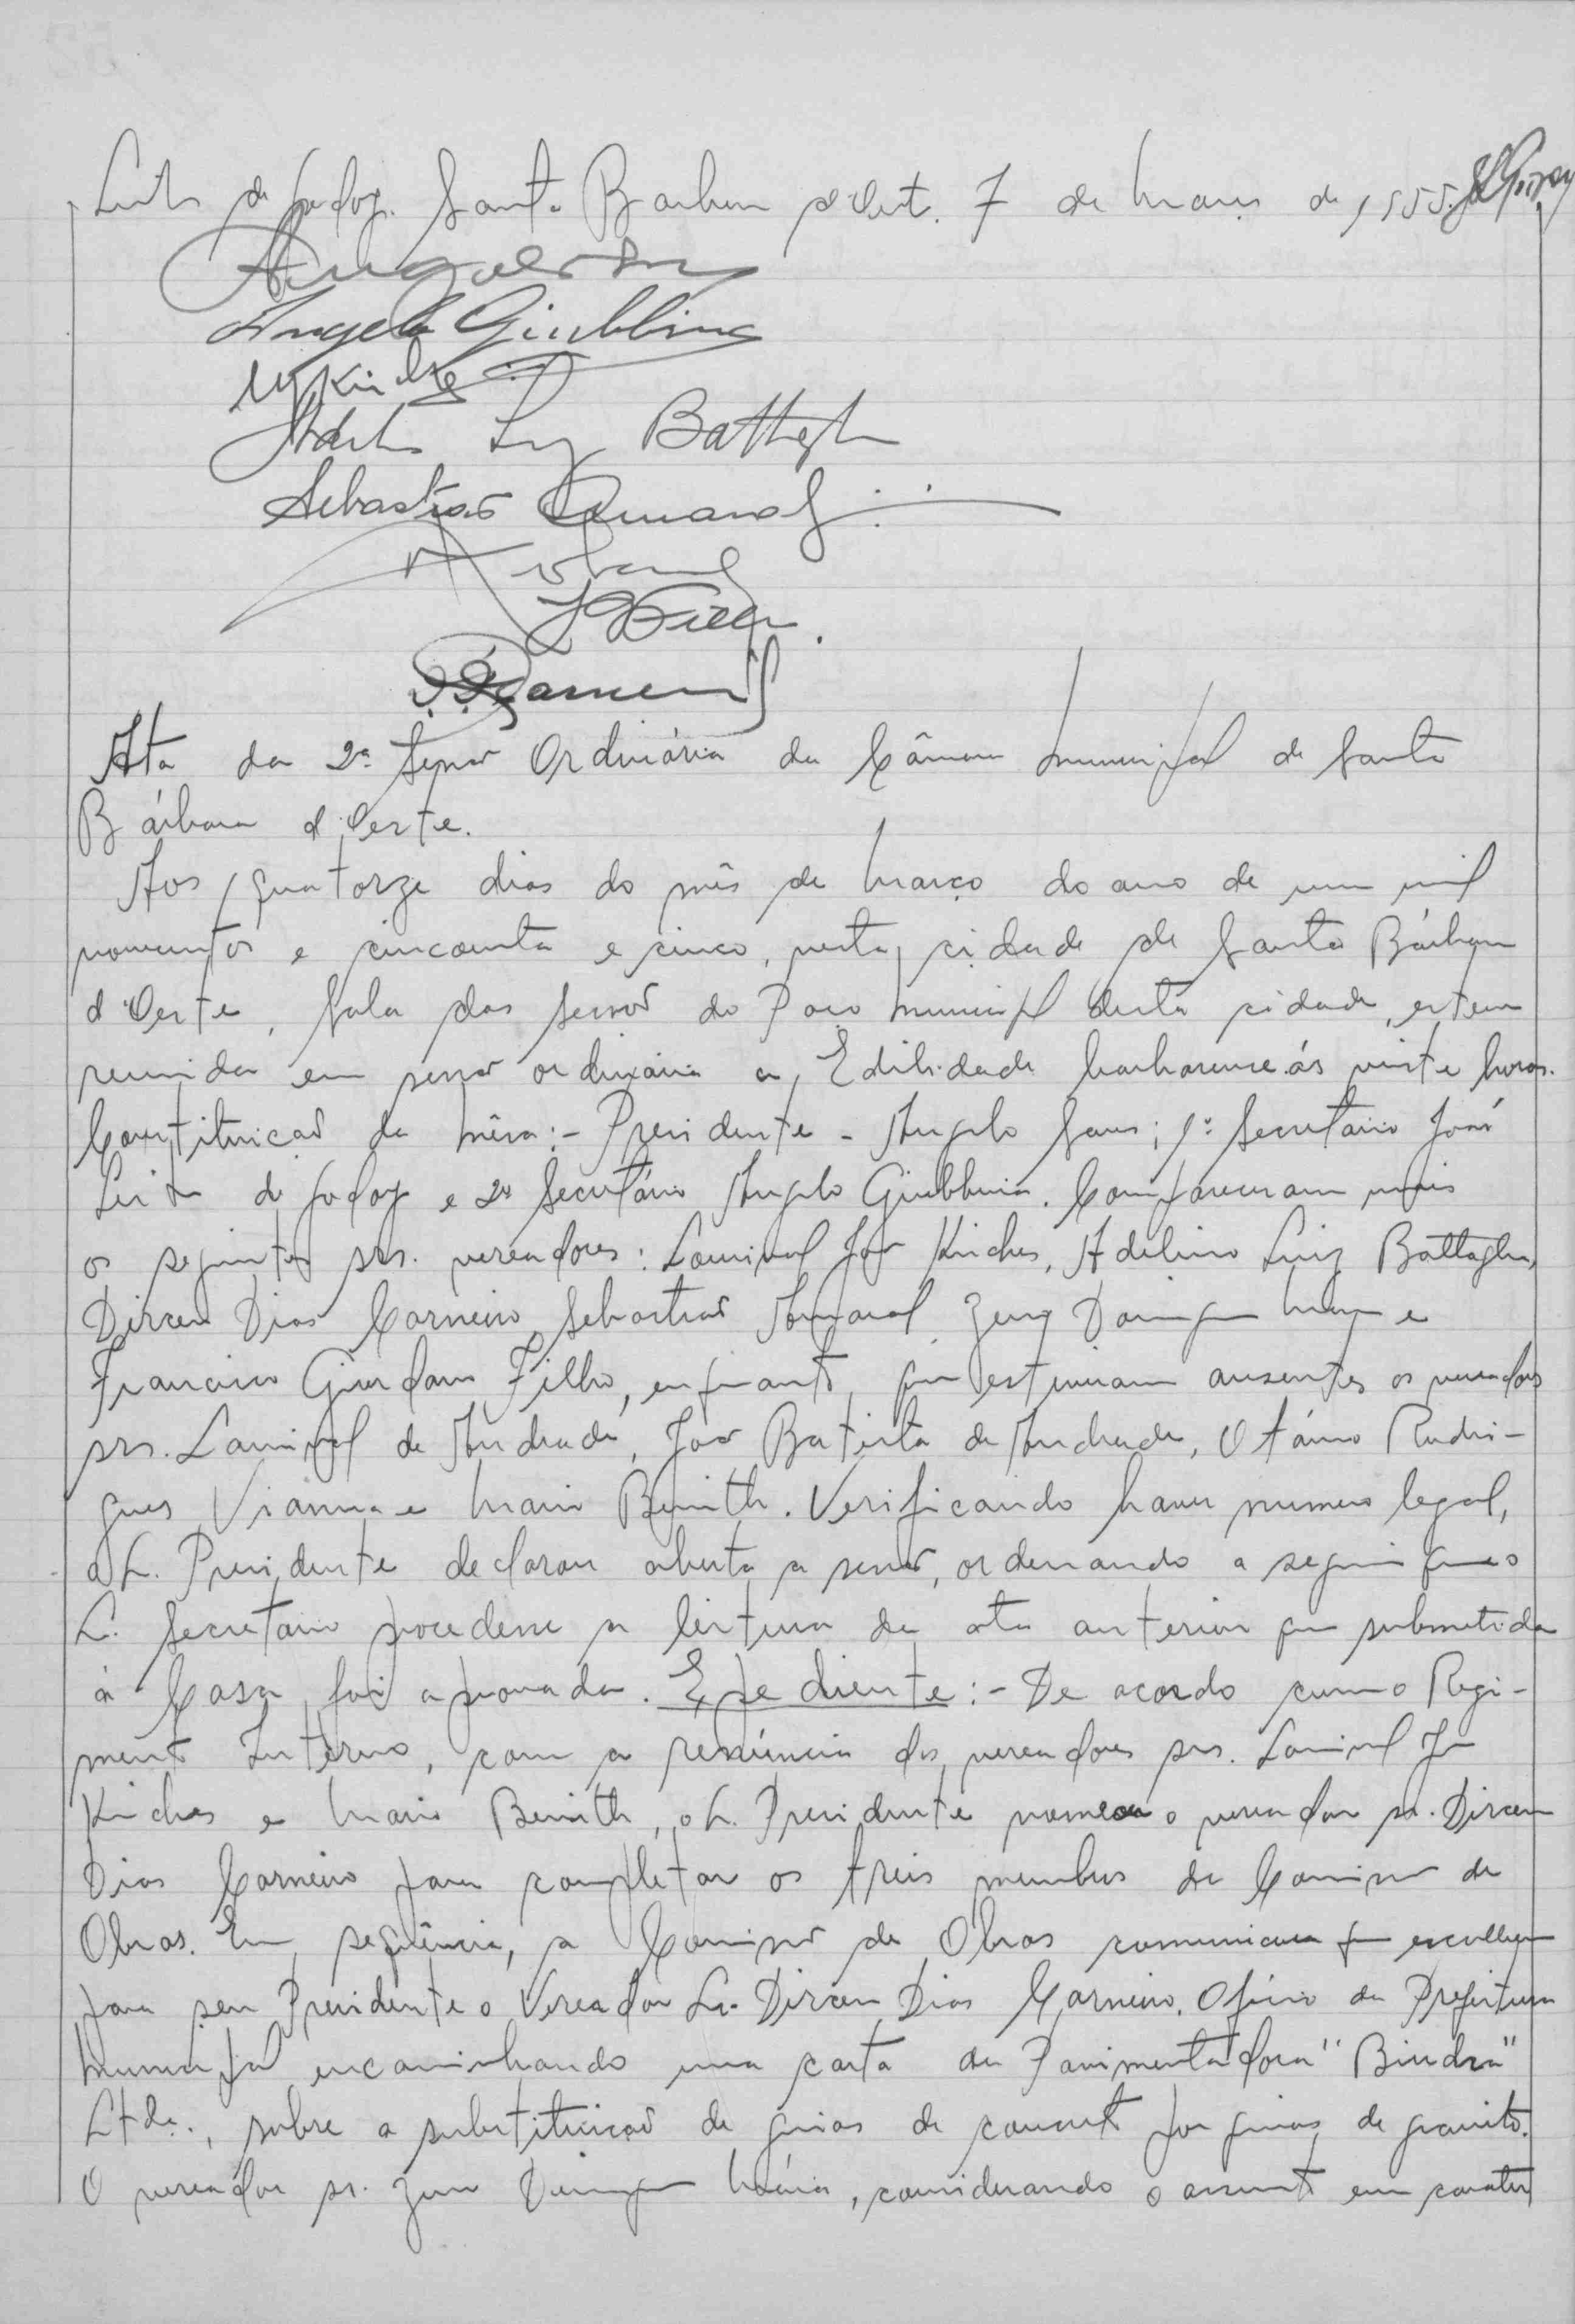 Leite de Godoy. Santa Barbara d'Oest. 7 de Março de 1955.
Angelo Giubbina
Adelino Luiz Battagli
Sebastião Amaral
Ata da 2ª Sessão Ordinária da Câmara Municipal de Santa
Bárbara d'Oeste.
Aos quatorze dias do mês de Março do ano de um mil
novecentos e cincoenta e cinco, nesta cidade de Santa Bárbara
d'Oeste, Sala das Sessões do Paço Municipal desta cidade, esteve
reunida em sessão ordinária a Edilidade barbarense ás vinte horas.
Constituição da Mêsa:- Presidente - Angelo Sans; 1º Secretário José
Leite de Godoy e 2º Secretário Angelo Giubbina. Compareceram mais
os seguintes srs. vereadores: Lourival José Kinches, Adelino Luiz Battaglia,
Dirceu Dias Carneiro, Sebastião Amaral, Domingos e
Francisco Giordano Filho, enquanto que estiveram ausentes os vereadores
srs. Lourival de Andrade, João Batista de Andrade, Otávio Rodri-
gues Vianna e Mario Benith. Verificando haver numero legal,
o S. Presidente declarou aberta a sessão, ordenando a seguir que o
S. Secretario procedesse a leitura da ata anterior que submetida
à Casa foi aprovada. Expediente:- De acordo com o Regi-
mento Interno, com a renúncia dos vereadores srs. Lourival José
Kinches e Mario Benith, o S. Presidente nomeou o vereador sr. Dirceu
Dias Carneiro para completar os treis membros da Comissão de
Obras. Em seqüência, a Comissão de Obras comunicou que escolheu
para seu Presidente o Vereador Sr. Dirceu Dias Carneiro. Ofício da Prefeitura
Municipal encaminhando uma carta da Pavimentadora "Bindra"
Ltda., sobre a substituição de guias de concreto por guias de granito.
O vereador sr. Domingos, considerando o assunto em carater